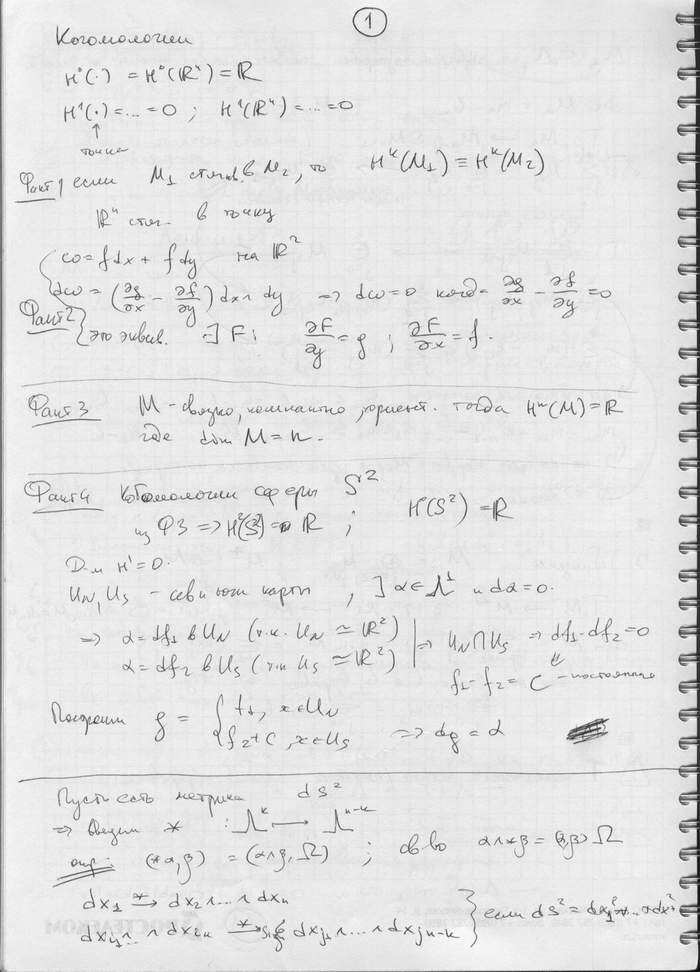 1
Когомологии
H⁰(·) = H⁰(ℝⁿ) = ℝ
H¹(·) = ... = 0 ; H¹(ℝⁿ) = ... = 0
↑
точка
Факт 1 если M₁ стягив. в M₂, то Hᵏ(M₁) ≡ Hᵏ(M₂)
ℝⁿ стяг. в точку
ω = f dx + f dy на ℝ²
dω = (∂g/∂x − ∂f/∂y) dx∧dy ⇒ dω = 0 когда ∂g/∂x − ∂f/∂y = 0
Факт 2 это эквив. ∃ F: ∂F/∂y = g ; ∂F/∂x = f.
Факт 3 M – связно, компактно, ориент. тогда Hⁿ(M) = ℝ
где dim M = n.
Факт 4 Когомологии сферы S²
из Ф3 ⇒ H²(S²) = ℝ ; H⁰(S²) = ℝ
Д-м H¹ = 0.
U_N, U_S – сев и юж карты , ] α ∈ Λ¹ и dα = 0.
⇒ α = df₁ в U_N (т.к. U_N ≃ ℝ²)
α = df₂ в U_S (т.к U_S ≃ ℝ²) | ⇒ U_N ∩ U_S ⇒ df₁ − df₂ = 0
f₁ − f₂ = C – постоянная
Построим g = { f₁, x ∈ U_N
f₂ + C, x ∈ U_S ⇒ dg = α
Пусть есть метрика ds²
⇒ Введём * : Λᵏ ⟼ Λⁿ⁻ᵏ
опр: (*α, β) = (α∧β, Ω) ; св-во α∧*β = (α,β) Ω
dx₁ →* dx₂∧...∧dxₙ
dx_i₁ ... ∧ dx_iₖ →* sig dx_j₁∧...∧dx_jₙ₋ₖ } если ds² = dx₁² + ... + dxₙ²